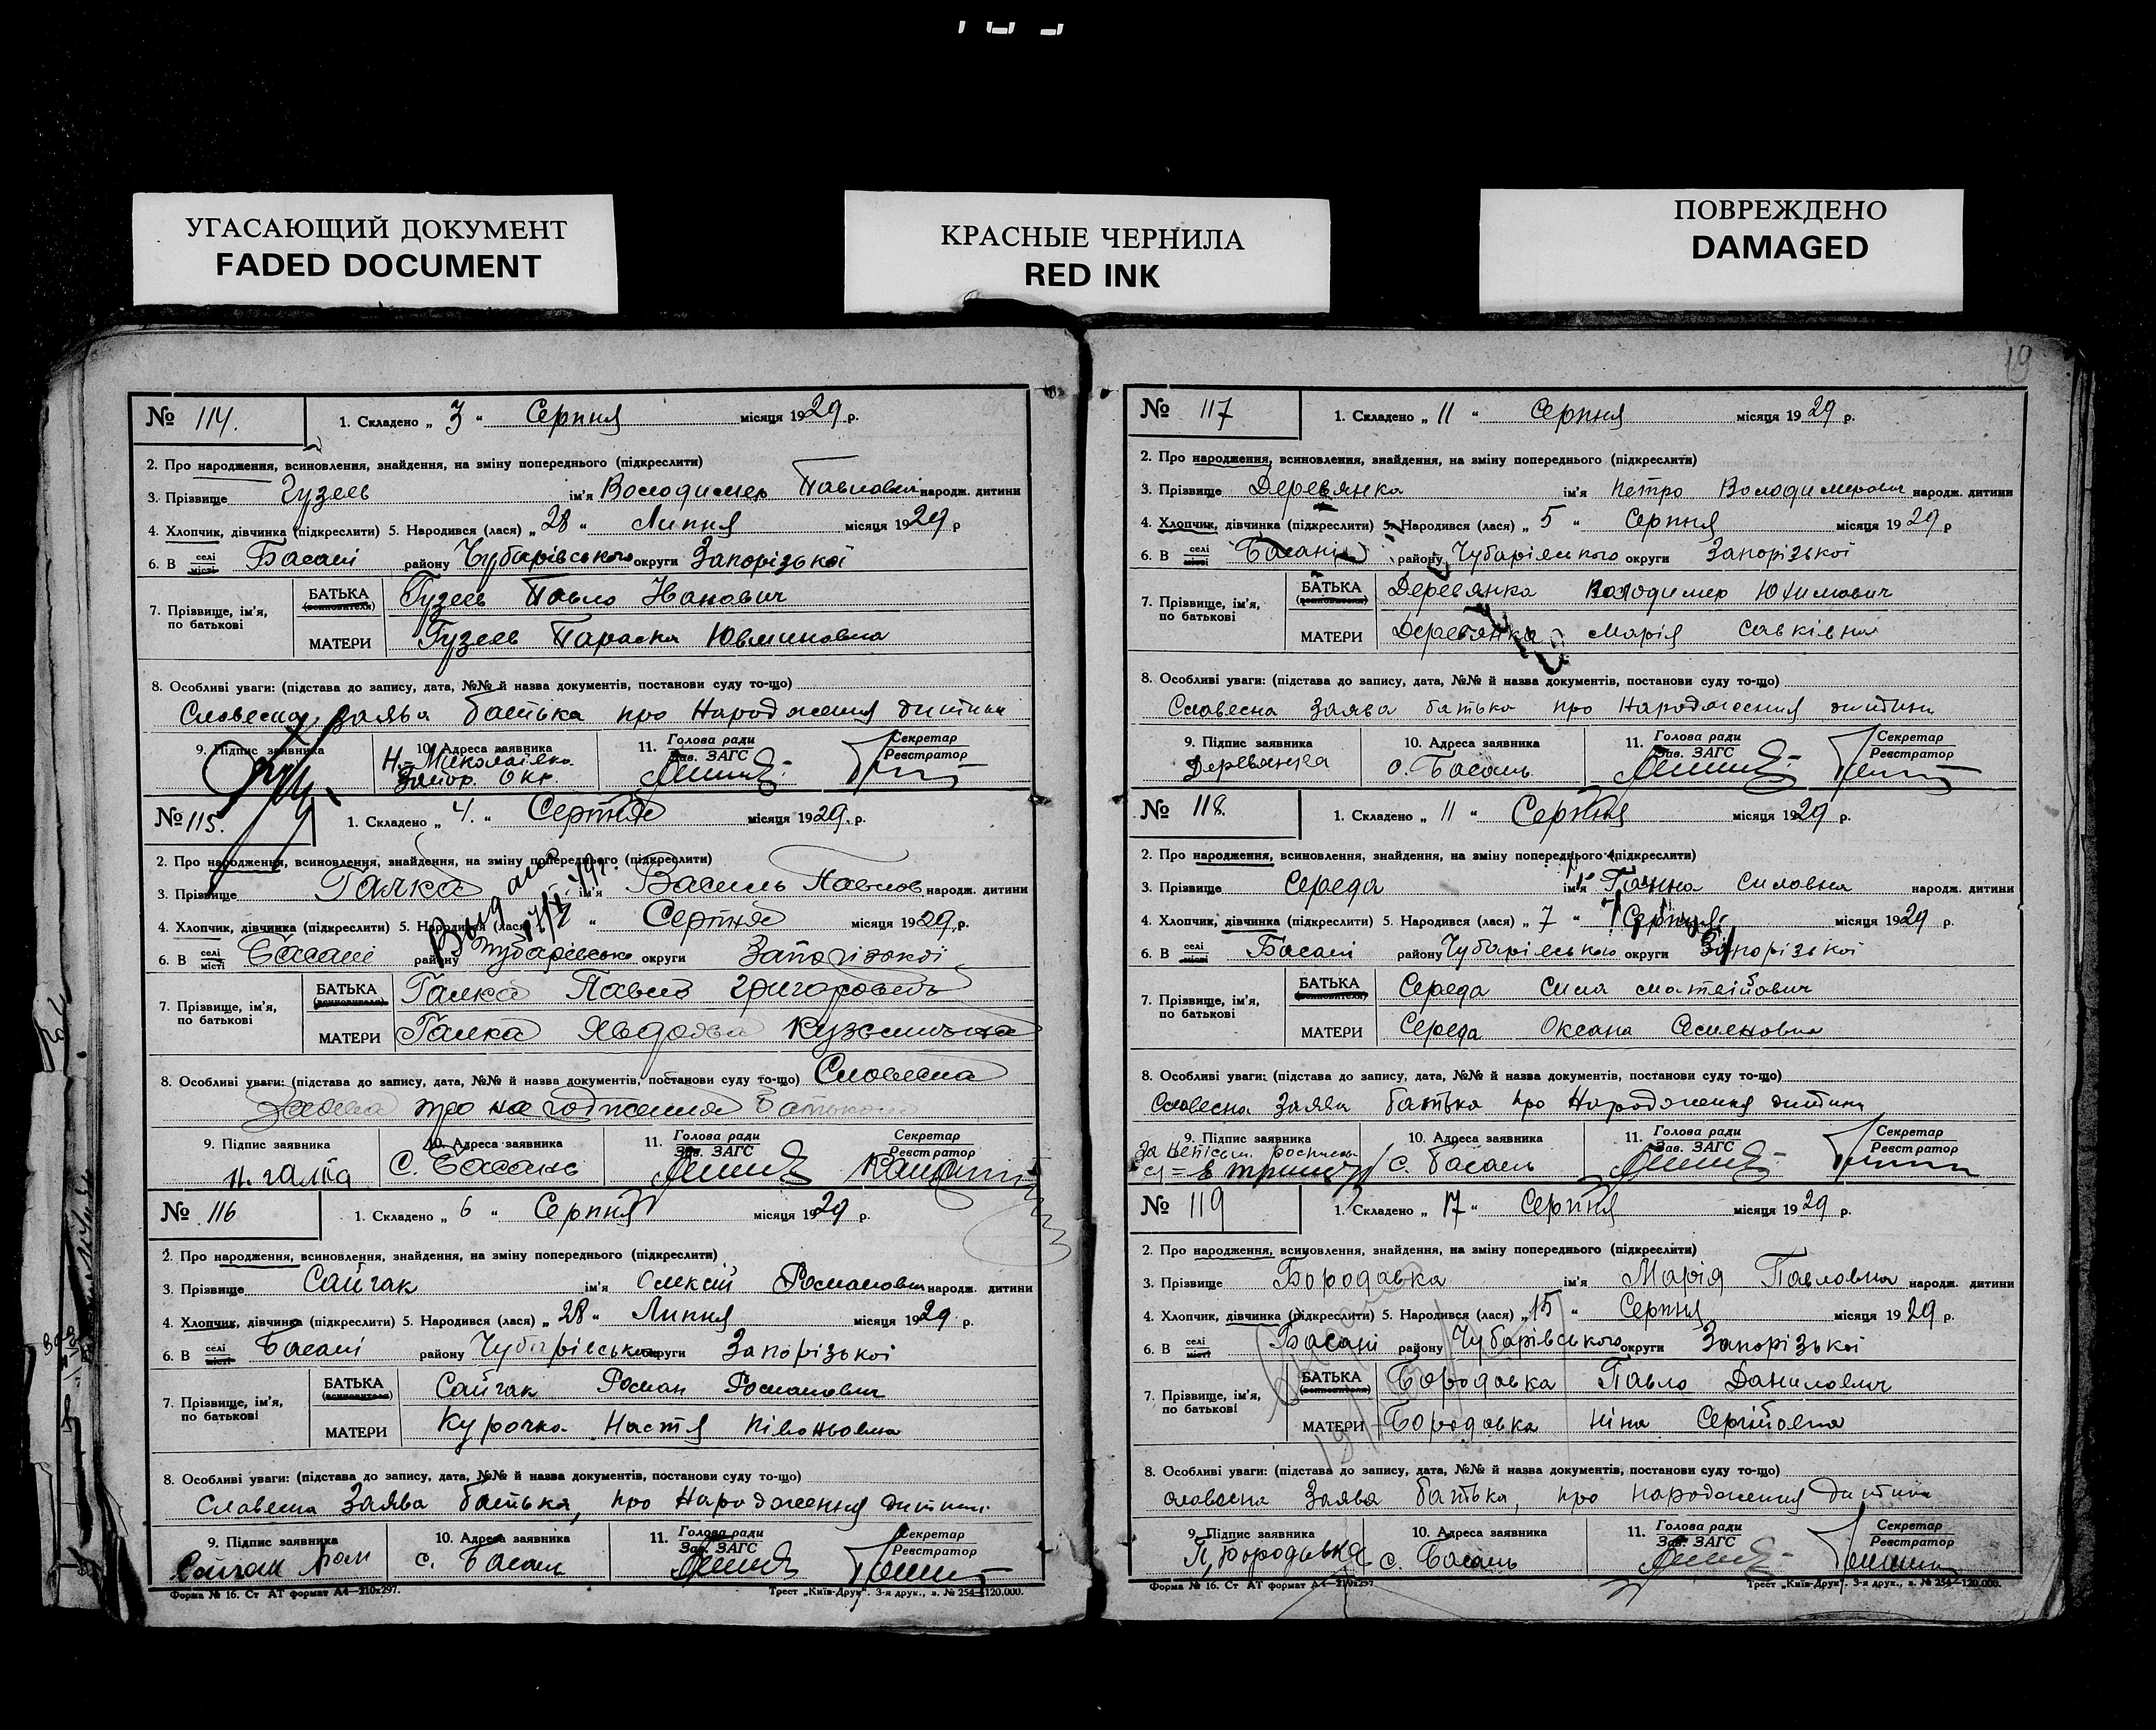 УГАСАЮЩИЙ ДОКУМЕНТ
FADED DOCUMENT
КРАСНЫЕ ЧЕРНИЛА
RED INK
ПОВРЕЖДЕНО
DAMAGED
№ 114. 1. Складено „ 3 " Серпня місяця 1929 р.
2. Про народження, всиновлення, знайдення, на зміну попереднього (підкреслити)
3. Прізвище Гузеев ім'я Володимер Павлович народж. дитини
4. Хлопчик, дівчинка (підкреслити) 5. Народився (лася) „ 28 " Липня місяця 1929 р
6. В селі місті Басані району Чубарівського округи Запорізької
7. Прізвище, ім'я, по батькові
БАТЬКА (всиновителя) Гузеев Павло Іванович
МАТЕРИ Гузеев Параска
8. Особливі уваги: (підстава до запису, дата, №№ й назва документів, постанови суду то-що)
Словесна заява батька про народження дитини
9. Підпис заявника 10. Адреса заявника 11. Голова ради Зав. ЗАГС Секретар Реєстратор
Н.-Миколаївка
Запор. Окр.
№ 115. 1. Складено „ 4. " Серпня місяця 1929. р.
2. Про народження, всиновлення, знайдення, на зміну попереднього (підкреслити)
3. Прізвище Галка ім'я Василь Павлов народж. дитини
4. Хлопчик, дівчинка (підкреслити) 5. Народився (лася) " Серпня місяця 1929, р.
6. В селі місті Басані району Чубарівсько округи Запорізької
7. Прізвище, ім'я, по батькові
БАТЬКА (всиновителя) Галка Павло Григоровеч
МАТЕРИ Галка Явдоха
8. Особливі уваги: (підстава до запису, дата, №№ й назва документів, постанови суду то-що) Словесна
заява про народження батька
9. Підпис заявника 10. Адреса заявника 11. Голова ради Зав. ЗАГС Секретар Реєстратор
п. галка с. Басань
№ 116 1. Складено „ 6 " Серпня місяця 1929 р.
2. Про народження, всиновлення, знайдення, на зміну попереднього (підкреслити)
3. Прізвище Сайгак ім'я Олексій Романович народж. дитини
4. Хлопчик, дівчинка (підкреслити) 5. Народився (лася) „ 28 " Липня місяця 1929 р.
6. В селі місті Басані району Чубарівського округи Запорізької
7. Прізвище, ім'я, по батькові
БАТЬКА (всиновителя) Сайгак Роман Романович
МАТЕРИ Курочка Настя
8. Особливі уваги: (підстава до запису, дата, №№ й назва документів, постанови суду то-що)
Словесна Заява батька, про Народження дитини.
9. Підпис заявника 10. Адреса заявника 11. Голова ради Зав. ЗАГС Секретар Реєстратор
Сайгак с. Басань
Форма № 16. Ст АТ формат А4—210х297. Трест „Київ-Друк". 3-я друк., з. № 254—120.000.
19
№ 117 1. Складено „ 11 " Серпня місяця 1929 р.
2. Про народження, всиновлення, знайдення, на зміну попереднього (підкреслити)
3. Прізвище Деревянка ім'я Петро Володимерович народж. дитини
4. Хлопчик, дівчинка (підкреслити) 5. Народився (лася) „ 5 " Серпня місяця 1929 р
6. В селі місті Басані району Чубарівського округи Запорізької
7. Прізвище, ім'я, по батькові
БАТЬКА (всиновителя) Деревянка Володимер Юхимович
МАТЕРИ Деревянка Марія Савківна
8. Особливі уваги: (підстава до запису, дата, №№ й назва документів, постанови суду то-що)
Словесна Заява батька про Народження дитини
9. Підпис заявника 10. Адреса заявника 11. Голова ради Зав. ЗАГС Секретар Реєстратор
Деревянка с. Басань
№ 118. 1. Складено „ 11 " Серпня місяця 1929 р.
2. Про народження, всиновлення, знайдення, на зміну попереднього (підкреслити)
3. Прізвище Середа ім'я Ганна Силовна народж. дитини
4. Хлопчик, дівчинка (підкреслити) 5. Народився (лася) „ 7 " Серпня місяця 1929 р.
6. В селі місті Басані району Чубарівського округи Запорізької
7. Прізвище, ім'я, по батькові
БАТЬКА (всиновителя) Середа Сила Матвійович
МАТЕРИ Середа Оксана Семеновна
8. Особливі уваги: (підстава до запису, дата, №№ й назва документів, постанови суду то-що)
Словесна Заява батька про Народження дитини
9. Підпис заявника 10. Адреса заявника 11. Голова ради Зав. ЗАГС Секретар Реєстратор
с. Басань
№ 119 1. Складено „ 17 " Серпня місяця 1929 р.
2. Про народження, всиновлення, знайдення, на зміну попереднього (підкреслити)
3. Прізвище Бородавка ім'я Марія Павловна народж. дитини
4. Хлопчик, дівчинка (підкреслити) 5. Народився (лася) „ 15 " Серпня місяця 1929 р.
6. В селі місті Басані району Чубарівського округи Запорізької
7. Прізвище, ім'я, по батькові
БАТЬКА (всиновителя) Бородавка Павло Данилович
МАТЕРИ Бородавка Ніна Сергійовна
8. Особливі уваги: (підстава до запису, дата, №№ й назва документів, постанови суду то-що)
словесна Заява батька, про народження дитини
9. Підпис заявника 10. Адреса заявника 11. Голова ради Зав. ЗАГС Секретар Реєстратор
П, бородавка с. Басань
Форма № 16. Ст АТ формат А4—210х297 Трест „Київ-Друк". 3-я друк., з. № 254—120.000.